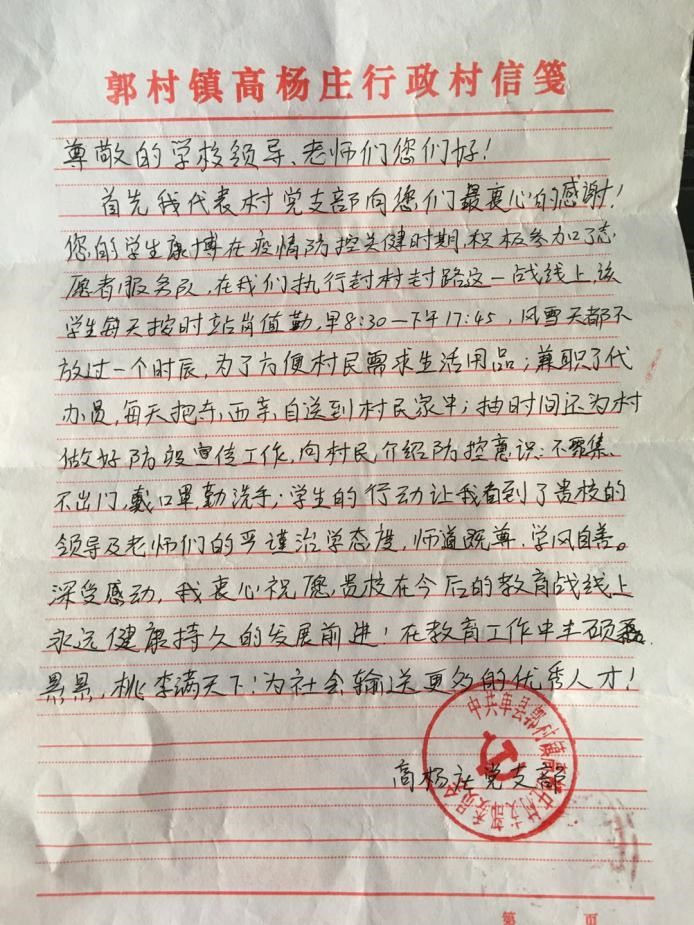 郭村镇高杨庄行政村信笺
尊敬的学校领导、老师们您们好!
首先我代表村党支部向您们最衷心的感谢!
您的学生康博在疫情防控关健时期,积极参加了志
愿者服务队,在我们执行封村封路这一战线上,该
学生每天按时站岗值勤,早8:30—下午17:45,风雪天都不
放过一个时辰,为了方便村民需求生活用品;兼职了代
办员,每天把东西亲自送到村民家中;抽时间还为村
做好防疫宣传工作,向村民介绍防控意识:不聚集、
不出门,戴口罩,勤洗手;学生的行动让我看到了贵校的
领导及老师们的严谨治学态度,师道既尊,学风自善。
深受感动,我衷心祝愿,贵校在今后的教育战线上
永远健康持久的发展前进!在教育工作中丰硕
累累,桃李满天下!为社会输送更多的优秀人才!
高杨庄党支部
中共单县郭村镇高杨庄村支部委员会
第 页